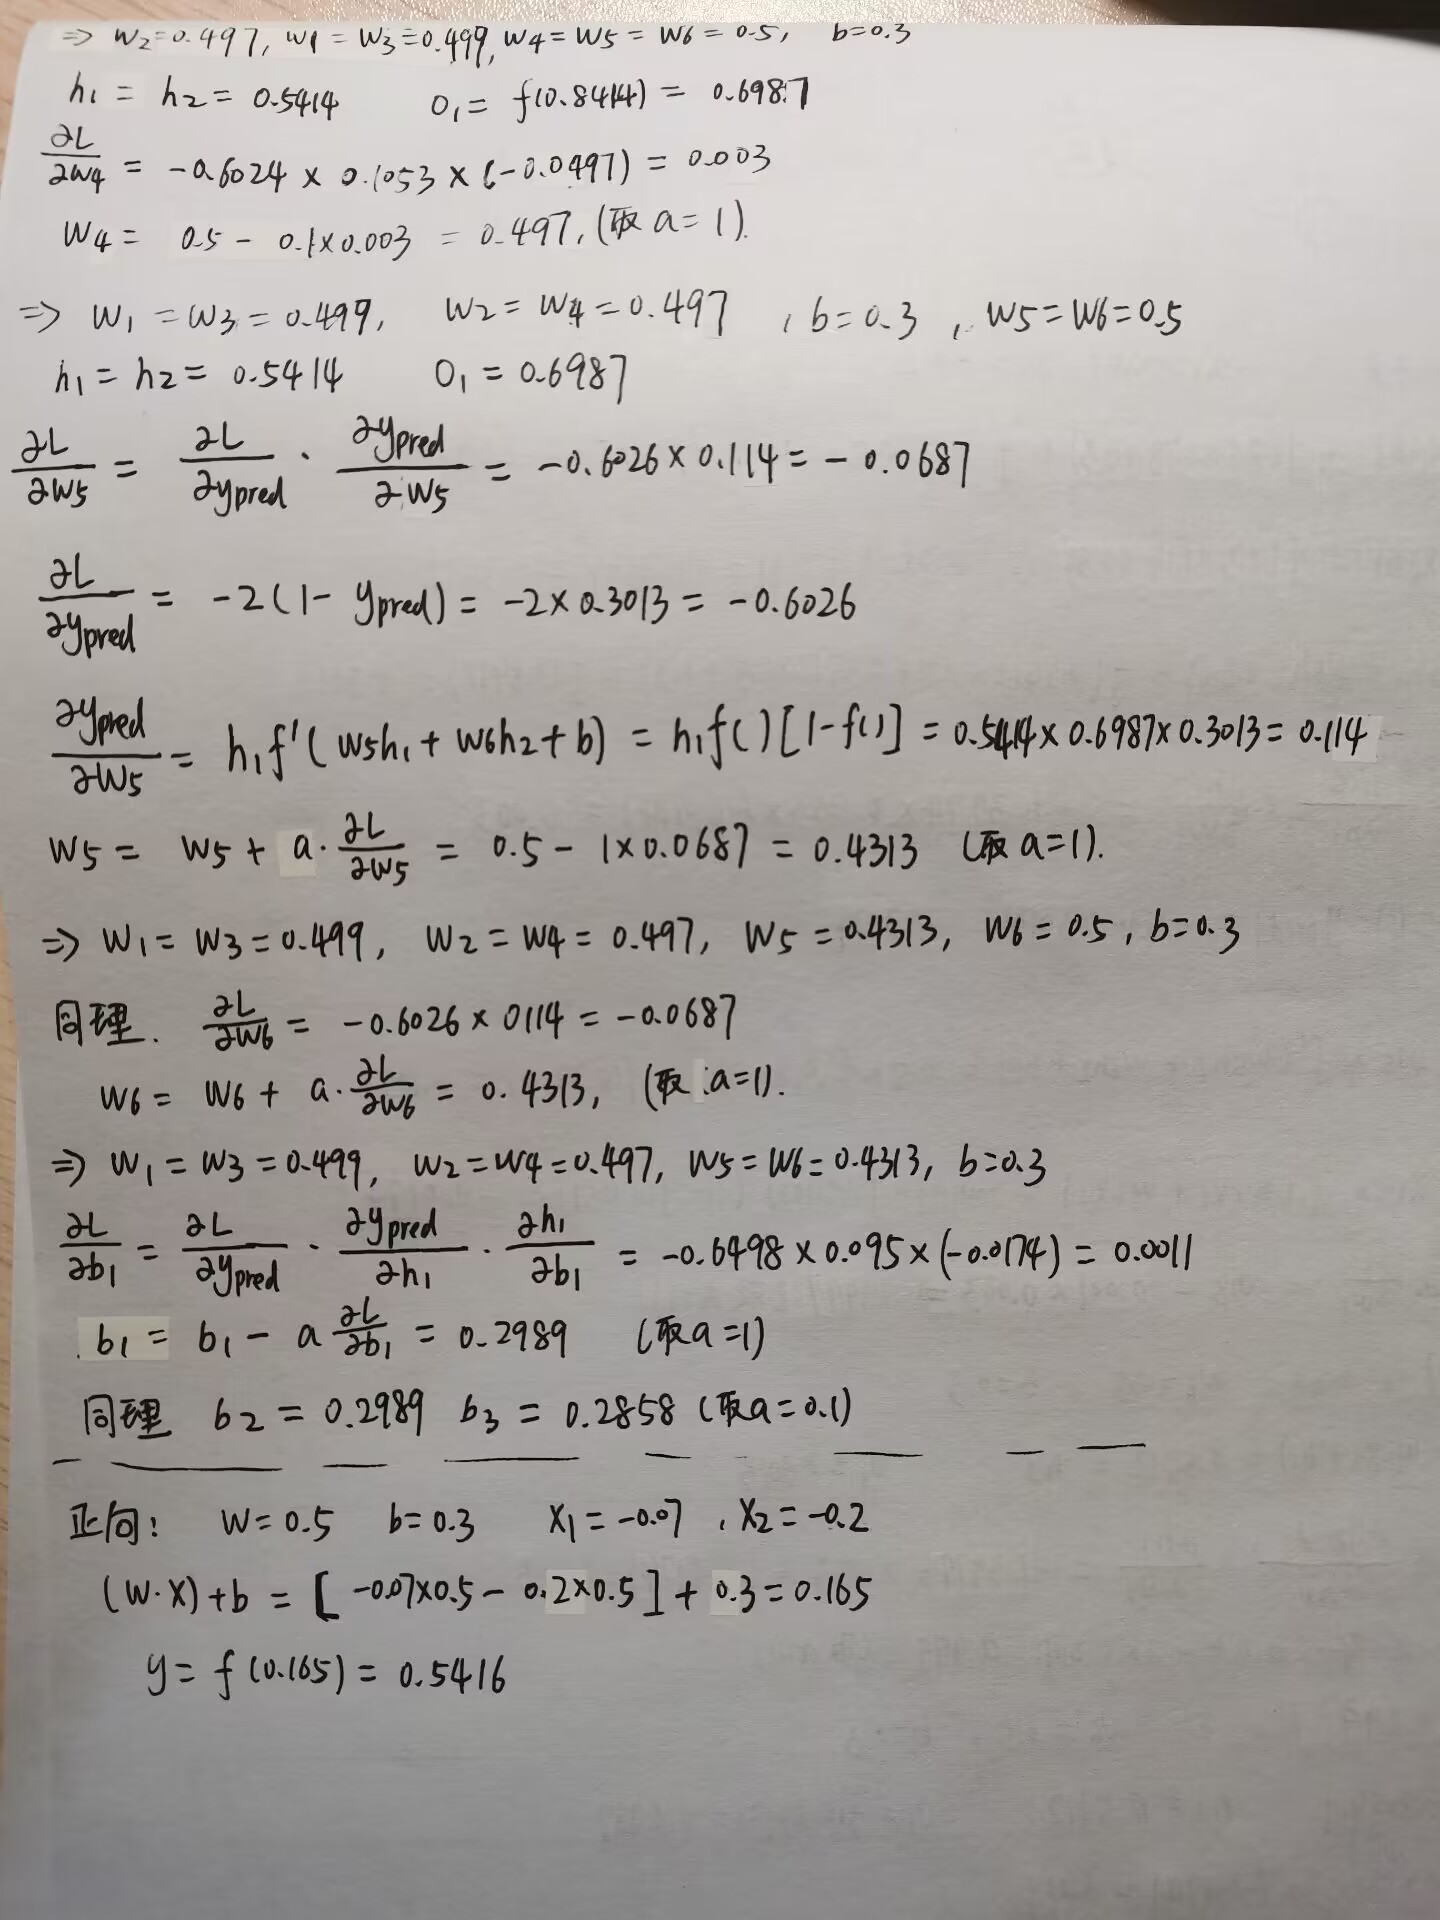 ⇒ w₂=0.497, w₁=w₃=0.499, w₄=w₅=w₆=0.5, b=0.3
h₁=h₂=0.5414 O₁=f(0.8414)=0.6987
∂L/∂w₄ = -0.6024×0.1053×(-0.0497)=0.003
w₄= 0.5-0.1×0.003=0.497, (取a=1).
⇒ w₁=w₃=0.499, w₂=w₄=0.497, b=0.3, w₅=w₆=0.5
h₁=h₂=0.5414 O₁=0.6987
∂L/∂w₅ = ∂L/∂ypred · ∂ypred/∂w₅ = -0.6026×0.114=-0.0687
∂L/∂ypred = -2(1-ypred)=-2×0.3013=-0.6026
∂ypred/∂w₅ = h₁f'(w₅h₁+w₆h₂+b)=h₁f()[1-f()]=0.5414×0.6987×0.3013=0.114
w₅= w₅+a·∂L/∂w₅ = 0.5-1×0.0687=0.4313 (取a=1).
⇒ w₁=w₃=0.499, w₂=w₄=0.497, w₅=0.4313, w₆=0.5, b=0.3
同理. ∂L/∂w₆ = -0.6026×0114=-0.0687
w₆= w₆+a·∂L/∂w₆ = 0.4313, (取a=1).
⇒ w₁=w₃=0.499, w₂=w₄=0.497, w₅=w₆=0.4313, b=0.3
∂L/∂b₁ = ∂L/∂ypred · ∂ypred/∂h₁ · ∂h₁/∂b₁ = -0.6498×0.095×(-0.0174)=0.0011
b₁= b₁-a ∂L/∂b₁ = 0.2989 (取a=1)
同理 b₂=0.2989 b₃=0.2858 (取a=0.1)
正向: W=0.5 b=0.3 X₁=-0.07, X₂=-0.2
(W·X)+b = [-0.07×0.5-0.2×0.5]+0.3=0.165
y=f(0.165)=0.5416